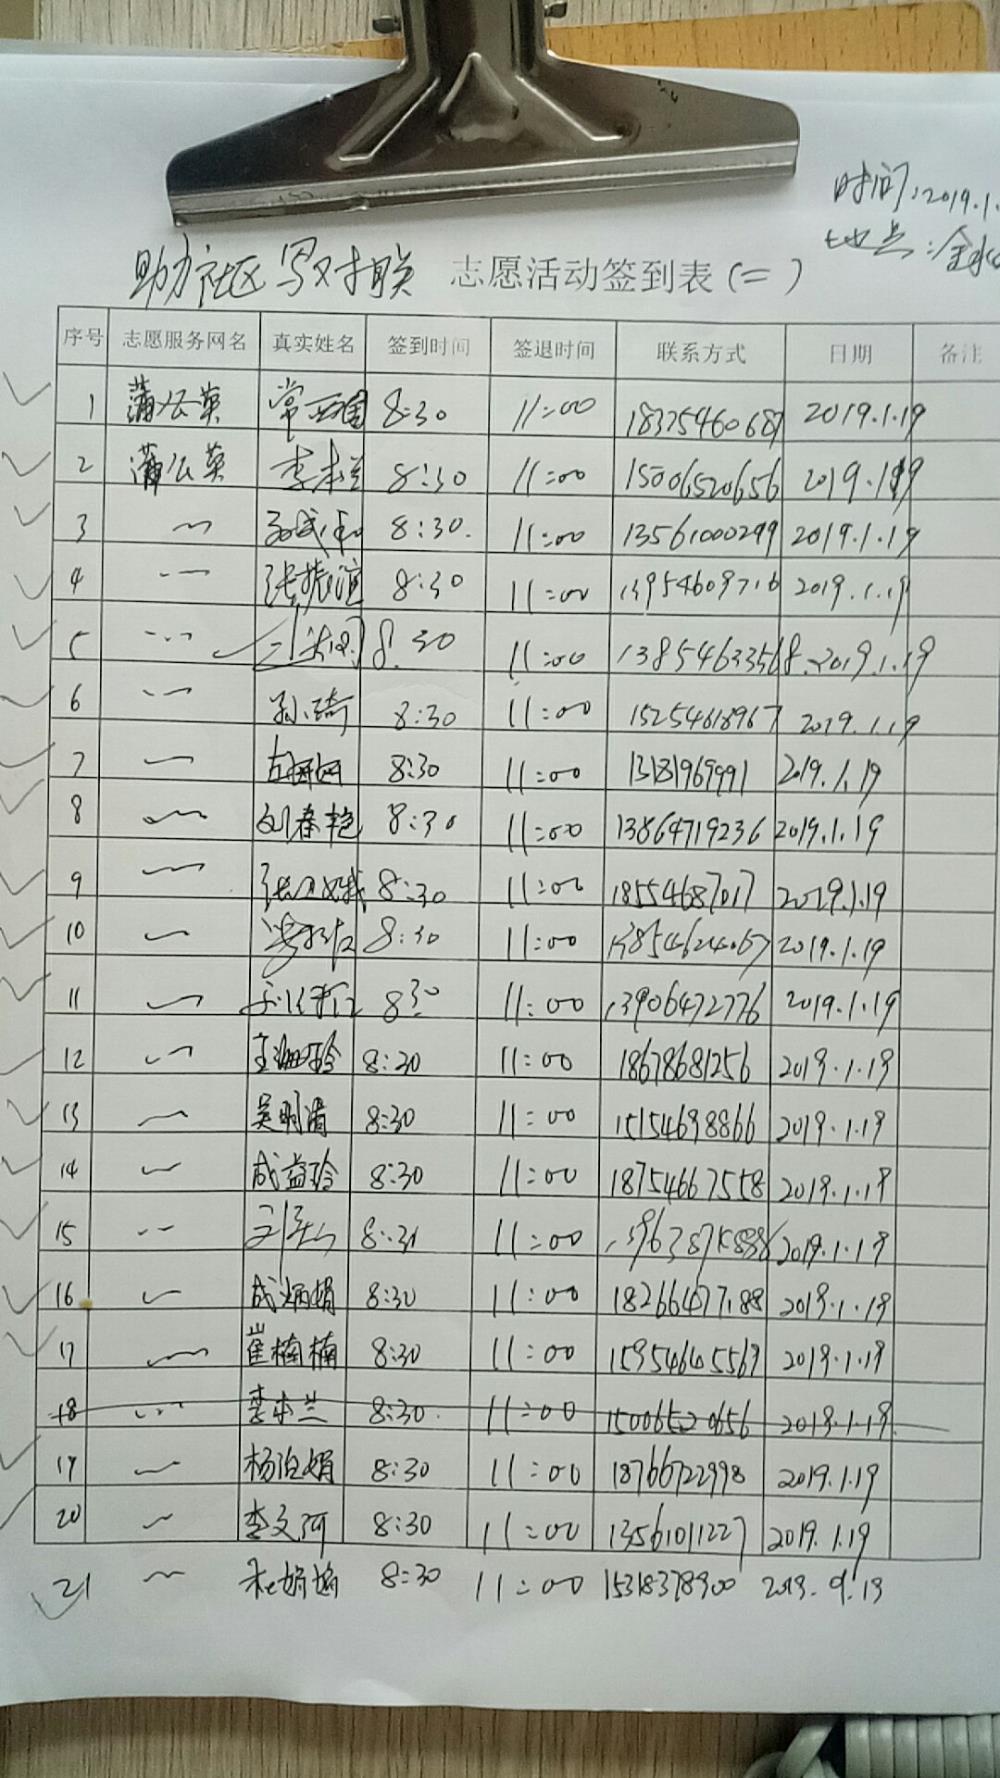 时间:2019.1.
地点:金水
助力社区写对联 志愿活动签到表(二)
序号 志愿服务网名 真实姓名 签到时间 签退时间 联系方式 日期 备注
1 蒲公英 常西国 8:30 11:00 18375460687 2019.1.19
2 蒲公英 李本兰 8:30 11:00 15006520656 2019.1.19
3 〃 8:30. 11:00 13561000299 2019.1.19
4 〃 张振谊 8:30 11:00 13954609716 2019.1.19
5 〃 8.30 11:00 13854633568 2019.1.19
6 〃 孙琦 8:30 11:00 15254618967 2019.1.19
7 〃 8:30 11:00 13181969991 2019.1.19
8 〃 刘春艳 8:30 11:00 13864719236 2019.1.19
9 〃 8:30 11:00 18554687017 2029.1.19
10 〃 8:30 11:00 13854624067 2019.1.19
11 〃 8:30 11:00 13906472776 2019.1.19
12 〃 8:30 11:00 18678681256 2019.1.19
13 〃 吴明清 8:30 11:00 15154698866 2019.1.19
14 〃 成益玲 8:30 11:00 18754667558 2019.1.19
15 〃 8:31 11:00 2019.1.19
16 〃 成炳娟 8:30 11:00 18266477188 2019.1.19
17 〃 崔楠楠 8:30 11:00 15954645569 2019.1.19
18 〃 李本兰 8:30. 11:00 15006520656 2019.1.19
19 〃 杨泊娟 8:30 11:00 18766722998 2019.1.19
20 〃 李文河 8:30 11:00 13561011227 2019.1.19
21 〃 8:30 11:00 15318378900 2019.9.19